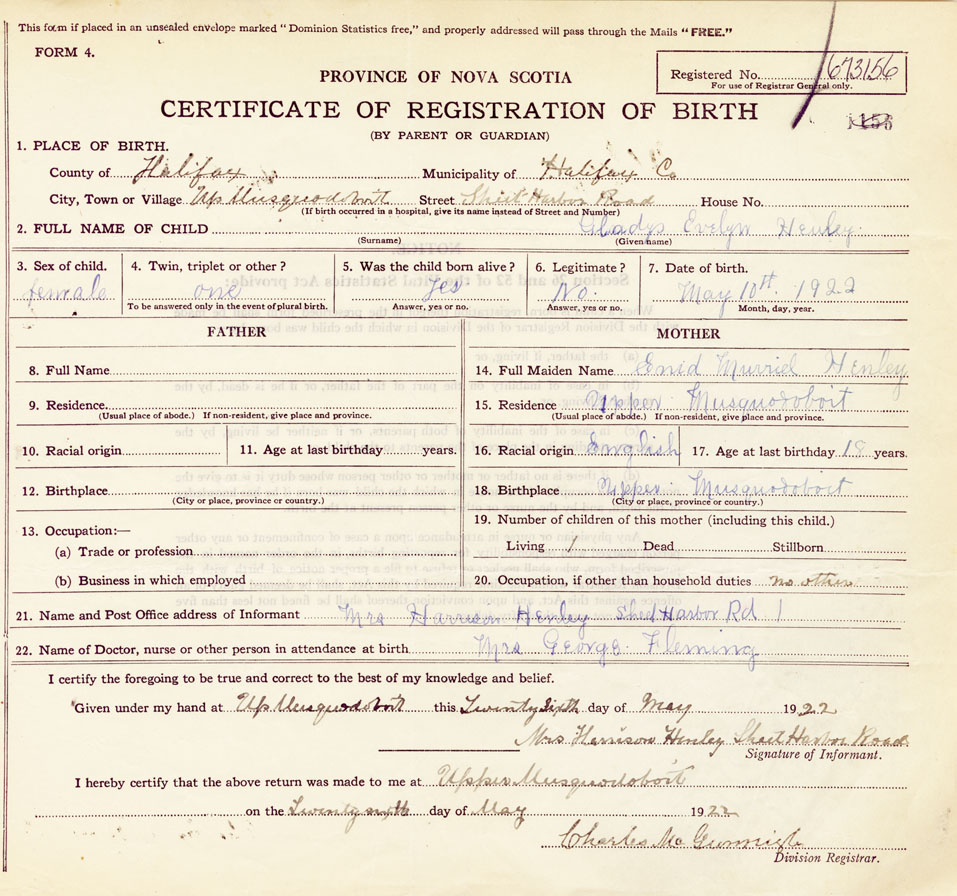 This form if placed in an unsealed envelope marked "Dominion Statistics free," and properly addressed will pass through the Mails "FREE."
FORM 4.
PROVINCE OF NOVA SCOTIA
Registered No. 673156
For use of Registrar General only.
CERTIFICATE OF REGISTRATION OF BIRTH
(BY PARENT OR GUARDIAN)
1. PLACE OF BIRTH.
County of Halifax Municipality of Halifax Co
City, Town or Village Up Musquodoboit Street Sheet Harbor Road House No.
(If birth occurred in a hospital, give its name instead of Street and Number)
2. FULL NAME OF CHILD Gladys Evelyn Henley
(Surname) (Given name)
3. Sex of child. 4. Twin, triplet or other? 5. Was the child born alive? 6. Legitimate? 7. Date of birth.
female one Yes. No. May 10th 1922
To be answered only in the event of plural birth. Answer, yes or no. Answer, yes or no. Month, day, year.
FATHER MOTHER
8. Full Name 14. Full Maiden Name Enid Murriel Henley
9. Residence 15. Residence Upper Musquodoboit
(Usual place of abode.) If non-resident, give place and province. (Usual place of abode.) If non-resident, give place and province.
10. Racial origin 11. Age at last birthday years. 16. Racial origin English 17. Age at last birthday 18 years.
12. Birthplace 18. Birthplace Upper Musquodoboit
(City or place, province or country.) (City or place, province or country.)
13. Occupation:— 19. Number of children of this mother (including this child.)
(a) Trade or profession Living 1 Dead Stillborn
(b) Business in which employed 20. Occupation, if other than household duties no other
21. Name and Post Office address of Informant Mrs Harrison Henley Sheet Harbor Rd
22. Name of Doctor, nurse or other person in attendance at birth Mrs George Fleming
I certify the foregoing to be true and correct to the best of my knowledge and belief.
Given under my hand at Up Musquodoboit this Twenty Sixth day of May 1922
Mrs Harrison Henley Sheet Harbor Road
Signature of Informant.
I hereby certify that the above return was made to me at Upper Musquodoboit
on the Twenty sixth day of May 1922
Charles Mc
Division Registrar.